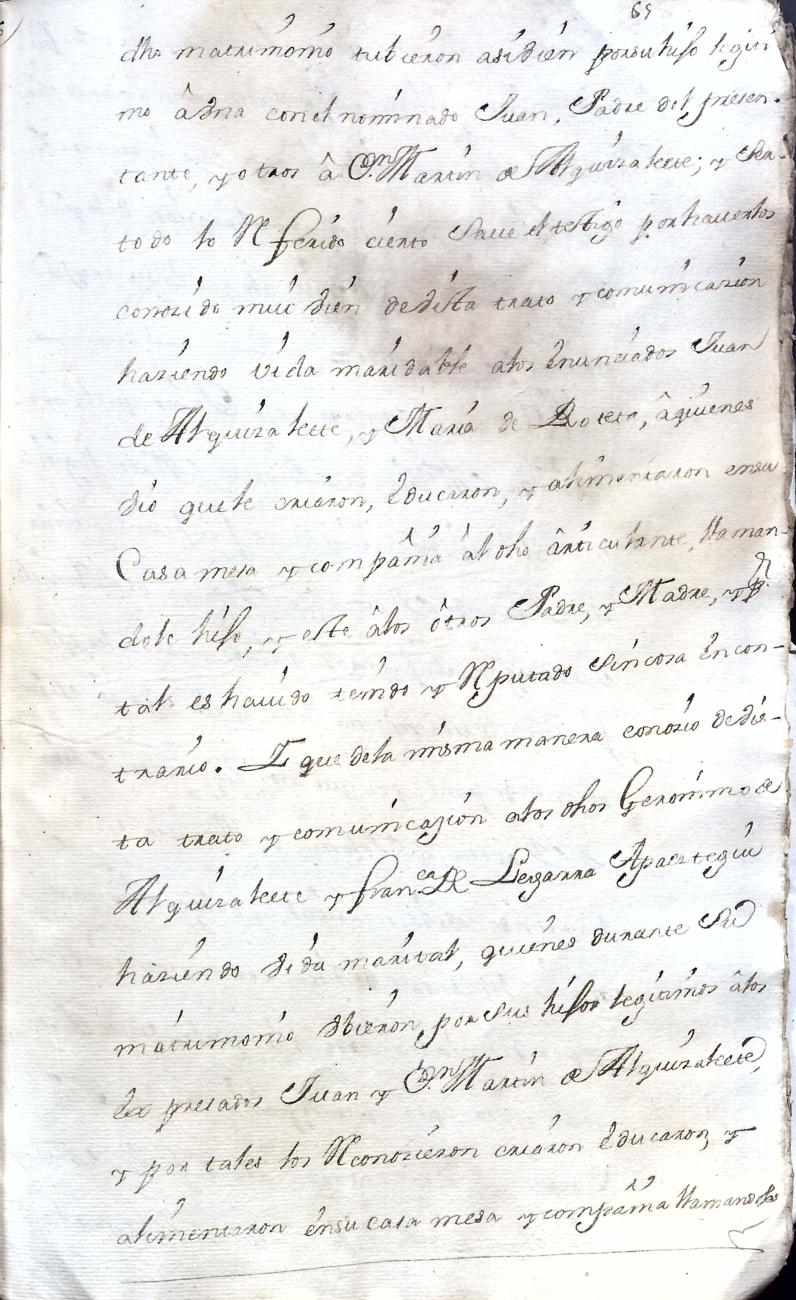 69
dho matrimonio tubieron asi bien por su hijo legiti
mo â Dria con el nominado Juan, Padre del presen-
tante, y otros â Dn. Martin de Alquizalete; y ser
todo lo Referido cierto save el testigo por haverlos
conozido mui bien de bista trato y comunicazion
haziendo vida maridable a los enunciados Juan
de Alquizalete, y Maria de Roteta, â quienes
bio que le criaron, educaron, y alimentaron en su
Casa mesa y compañia al dho ârticulante, llaman-
dole hijo, y este âlos ôtros Padre, y Madre, y pr.
tal es havido tenido y Reputado sin cosa en con-
trario. I que de la misma manera conozio de bis-
ta trato y comunicazion alos dhos Geronimo de
Alquizalete y Franca. de Lezarra Apaeztegui
haziendo bida marital, quienes durante su
matrimonio obieron, por sus hijos legitimos âlos
Expresados Juan y Dn. Martin de Alquizalete,
y por tales los Reconozieron criaron educaron, y
alimentaron en su casa mesa y compañia llamandoles